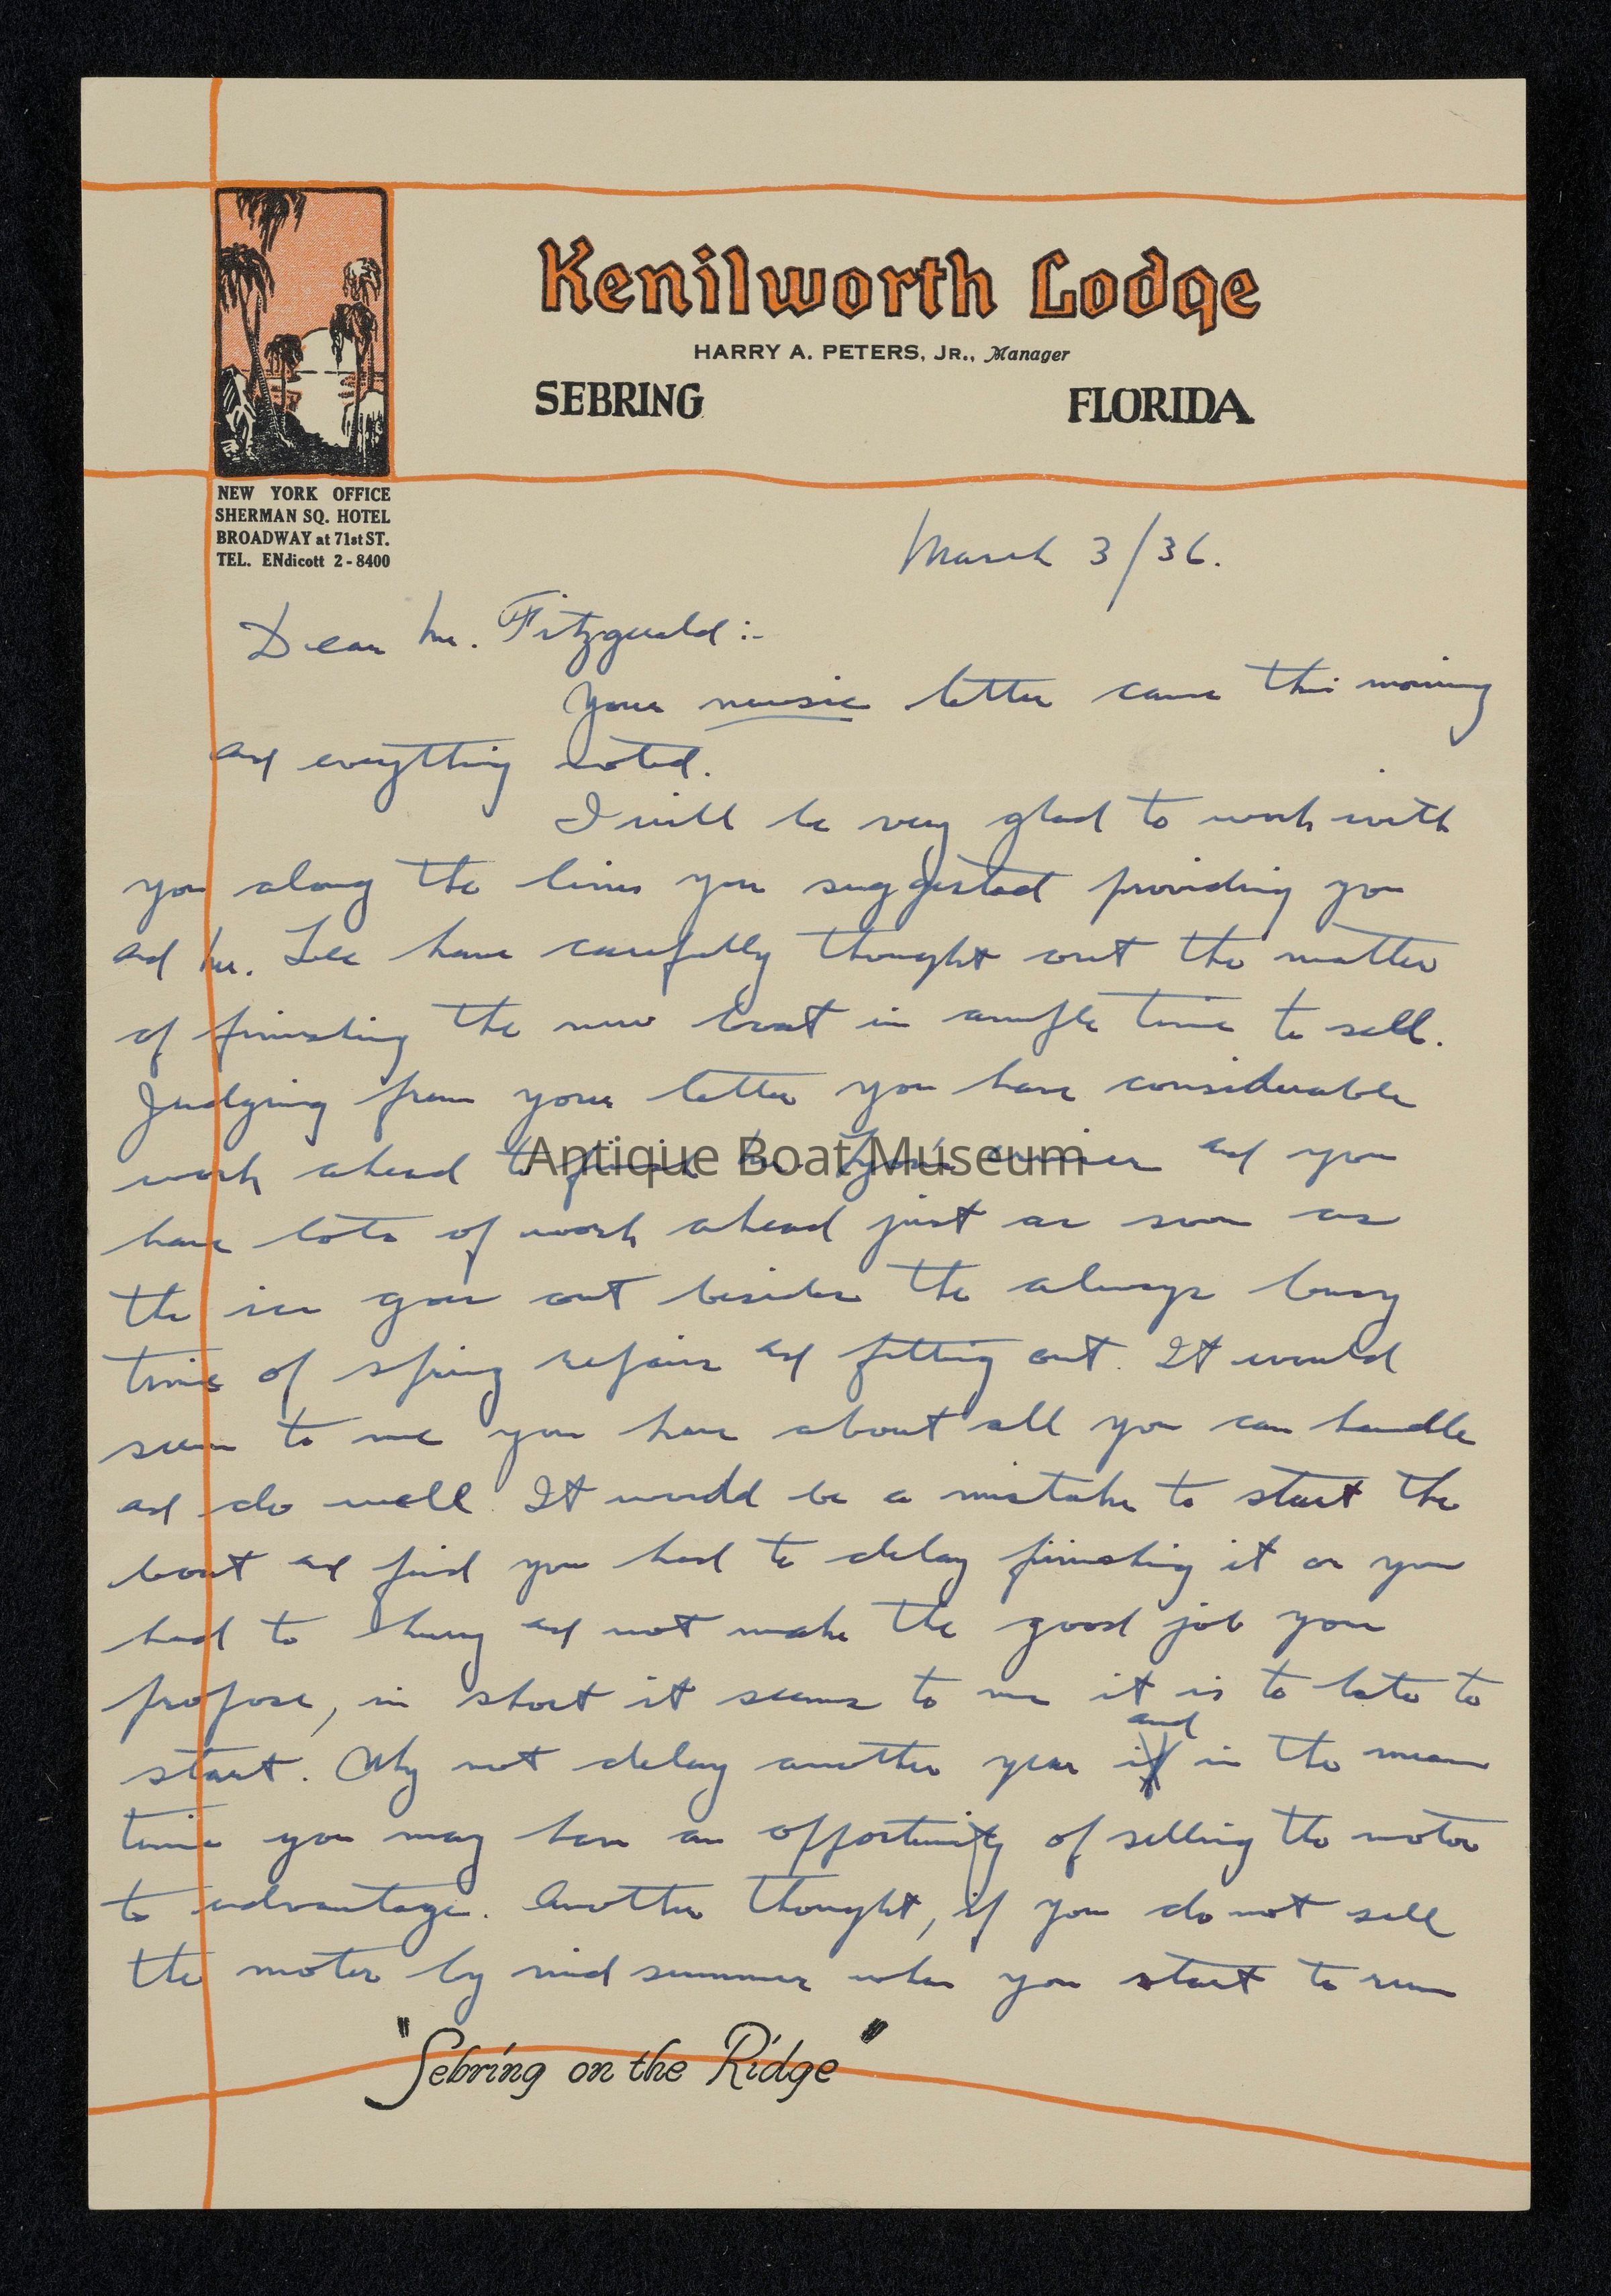 Kenilworth Lodge
HARRY A. PETERS, JR., Manager
SEBRING FLORIDA
NEW YORK OFFICE
SHERMAN SQ. HOTEL
BROADWAY at 71st ST.
TEL. ENdicott 2-8400
March 3/36.
Dear Mr. Fitzgerald:-
Your newsie letter came this morning
and everything noted.
I will be very glad to work with
you along the lines you suggested providing you
and Mr. Lee have carefully thought out the matter
of finishing the new boat in ample time to sell.
Judging from your letter you have considerable
work ahead to finish cruiser and you
have lots of work ahead just as soon as
the ice goes out besides the always busy
time of spring repairs and fitting out. It would
seem to me you have about all you can handle
and do well. It would be a mistake to start the
boat and find you had to delay finishing it or you
had to hurry and not make the good job you
propose, in short it seems to me it is to late to
start. Why not delay another year and in the mean
time you may have an opportunity of selling the motor
to advantage. Another thought, if you do not sell
the motor by mid summer when you start to run
"Sebring on the Ridge"
Antique Boat Museum